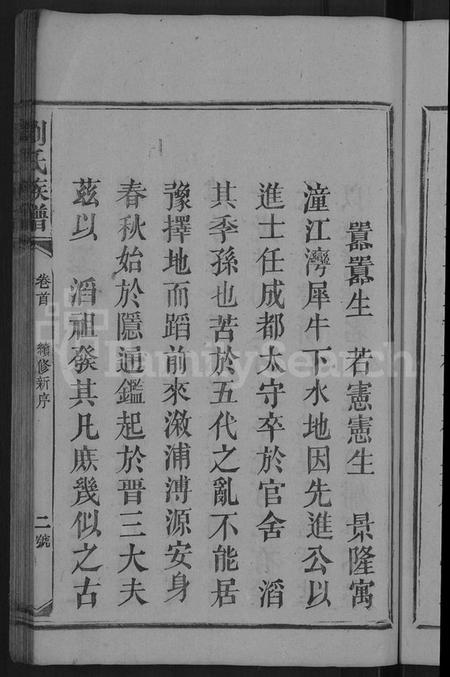 囂囂生 若憲憲生 景隆寓
潼江灣犀牛下水地因先進公以
進士任成都太守卒於官舍 滔
其季孫也苦於五代之亂不能居
豫擇地而蹈前來漵浦溥源安身
春秋始於隱通鑑起於晋三大夫
茲以 滔祖發其凡庶幾似之古
劉氏族譜 卷首 續修新序 二號
FamilySearch